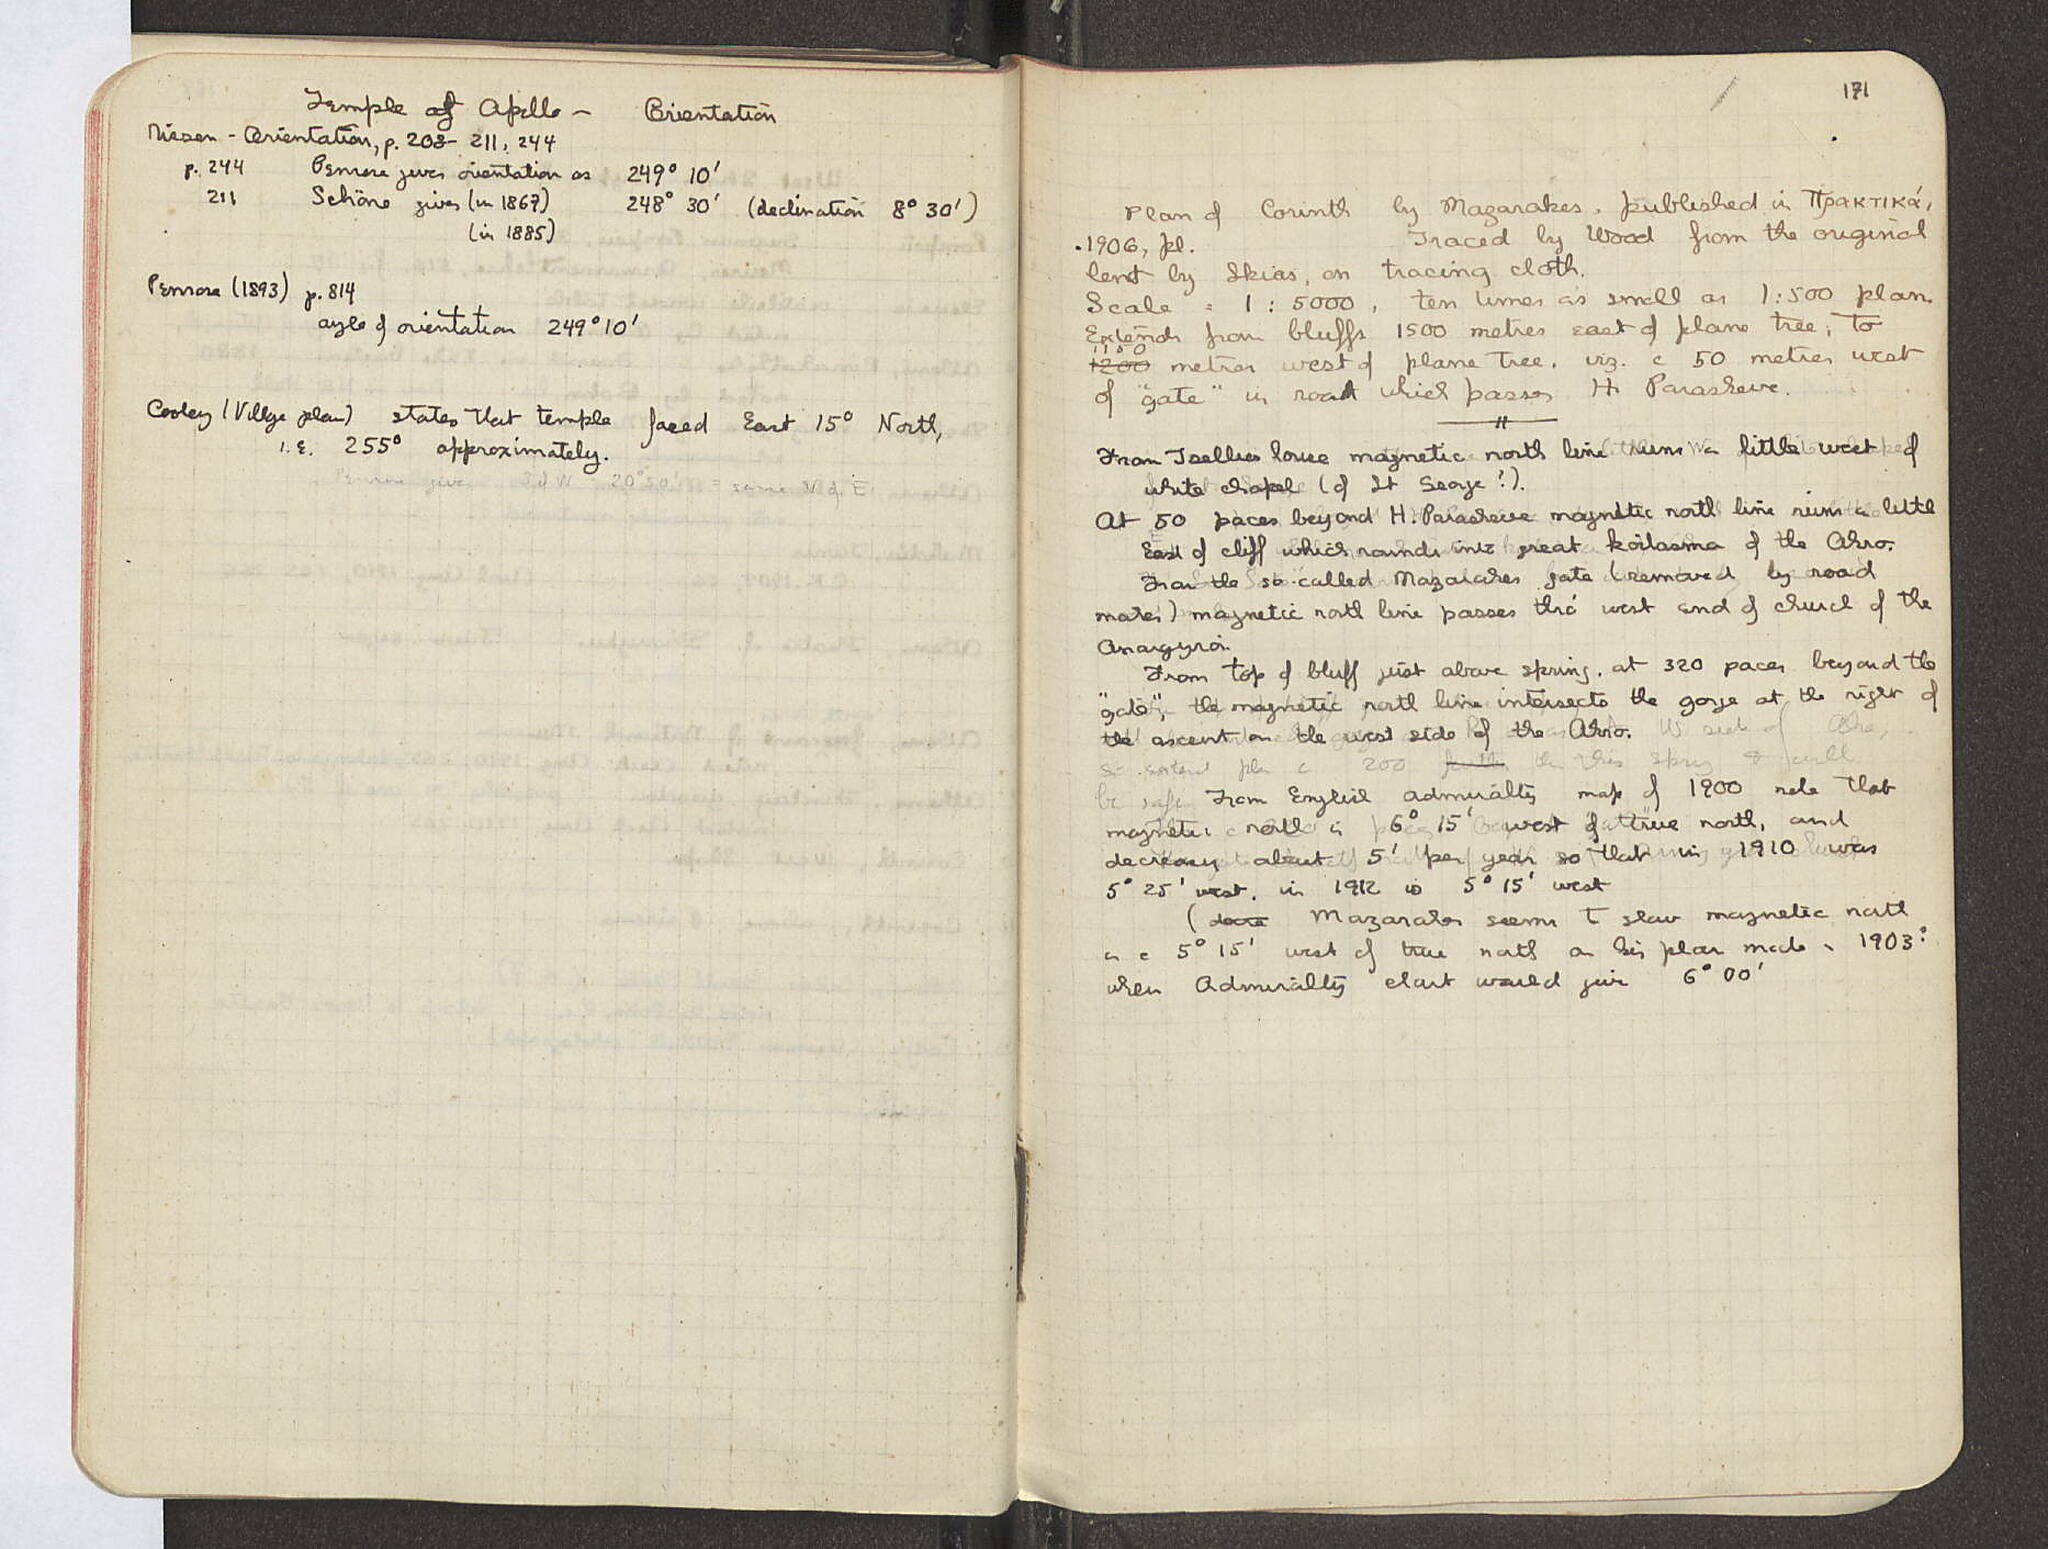 Temple of Apollo — Orientation
Nissen - Orientation, p. 203- 211, 244
p. 244 Penrose gives orientation as 249° 10'
211 Schöne gives (in 1867) 248° 30' (declination 8° 30')
(in 1885)
Penrose (1893) p. 814
angle of orientation 249° 10'
Cooley (Village plan) states that temple faced East 15° North,
i.e. 255° approximately.
Penrose gives S of W 20° 50' = same N of E
171
Plan of Corinth by Mazarakes, published in Πρακτικά,
1906, pl. Traced by Wood from the original
lent by Skias, on tracing cloth.
Scale = 1 : 5000, ten times as small as 1:500 plan.
Extends from bluffs 1500 metres east of plane tree, to
1100
1200 metres west of plane tree, viz. c 50 metres west
of "gate" in road which passes H. Paraskeve.
From Tsellios house magnetic north line runs a little west of
white chapel (of St George?).
At 50 paces beyond H. Paraskeve magnetic north line runs a little
East of cliff which rounds into great koilasma of the Akro.
From the so-called Mazarakes gate (removed by road
makers) magnetic north line passes thro' west end of church of the
Anargyroi.
From top of bluff just above spring, at 320 paces beyond the
"gate", the magnetic north line intersects the gorge at the right of
the ascent on the west side of the Akro. W side of Akro,
so extend plan c 200 further than this spring &
be safe From English admiralty map of 1900 note that
magnetic north is 6° 15' west of true north, and
decreases about 5' per year so that in 1910 was
5° 25' west. in 1912 is 5° 15' west
( Mazarakes seems to show magnetic north
as c 5° 15' west of true north on his plan made in 1903:
when Admiralty chart would give 6° 00'